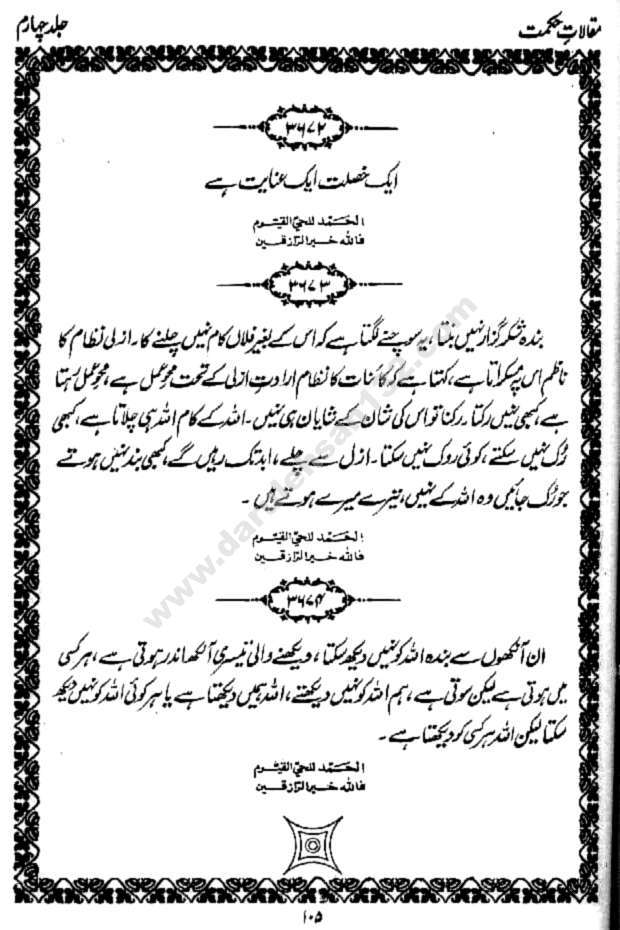 مقالاتِ حکمت
جلد چہارم
۳۶۷۲
ایک خصلت ایک عنایت ہے
الحَمد للحیّ القیّوم
فاللہ خیر الرّازقین
۳۶۷۳
بندہ شکر گزار نہیں بنتا، یہ سوچنے لگتا ہے کہ اس کے بغیر فلاں کام نہیں چلنے کا۔ ازلی نظام کا
ناظم اس پہ مسکراتا ہے، کہتا ہے کہ کائنات کا نظام ارادتِ ازلی کے تحت محوِ عمل ہے، محوِ عمل رہتا
ہے، کبھی نہیں رکتا۔ رکنا تو اس کی شان کے شایان ہی نہیں۔ اللہ کے کام اللہ ہی چلاتا ہے، کبھی
رُک نہیں سکتے، کوئی روک نہیں سکتا۔ ازل سے چلے، ابد تک رہیں گے، کبھی بند نہیں ہوتے
جو رُک جائیں وہ اللہ کے نہیں، تیرے میرے ہوتے ہیں۔
الحَمد للحیّ القیّوم
فاللہ خیر الرّازقین
۳۶۷۴
ان آنکھوں سے بندہ اللہ کو نہیں دیکھ سکتا، دیکھنے والی تیسری آنکھ اندر ہوتی ہے، ہر کسی
میں ہوتی ہے لیکن سوتی ہے، ہم اللہ کو نہیں دیکھتے، اللہ ہمیں دیکھتا ہے یا ہر کوئی اللہ کو نہیں دیکھ
سکتا لیکن اللہ ہر کسی کو دیکھتا ہے۔
الحَمد للحیّ القیّوم
فاللہ خیر الرّازقین
۱۰۵